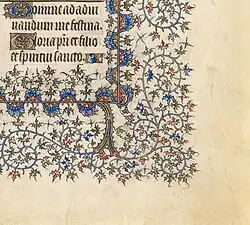 Domine ad adiu
uandum me festina
Gloria pri et filio
et spiritui sancto